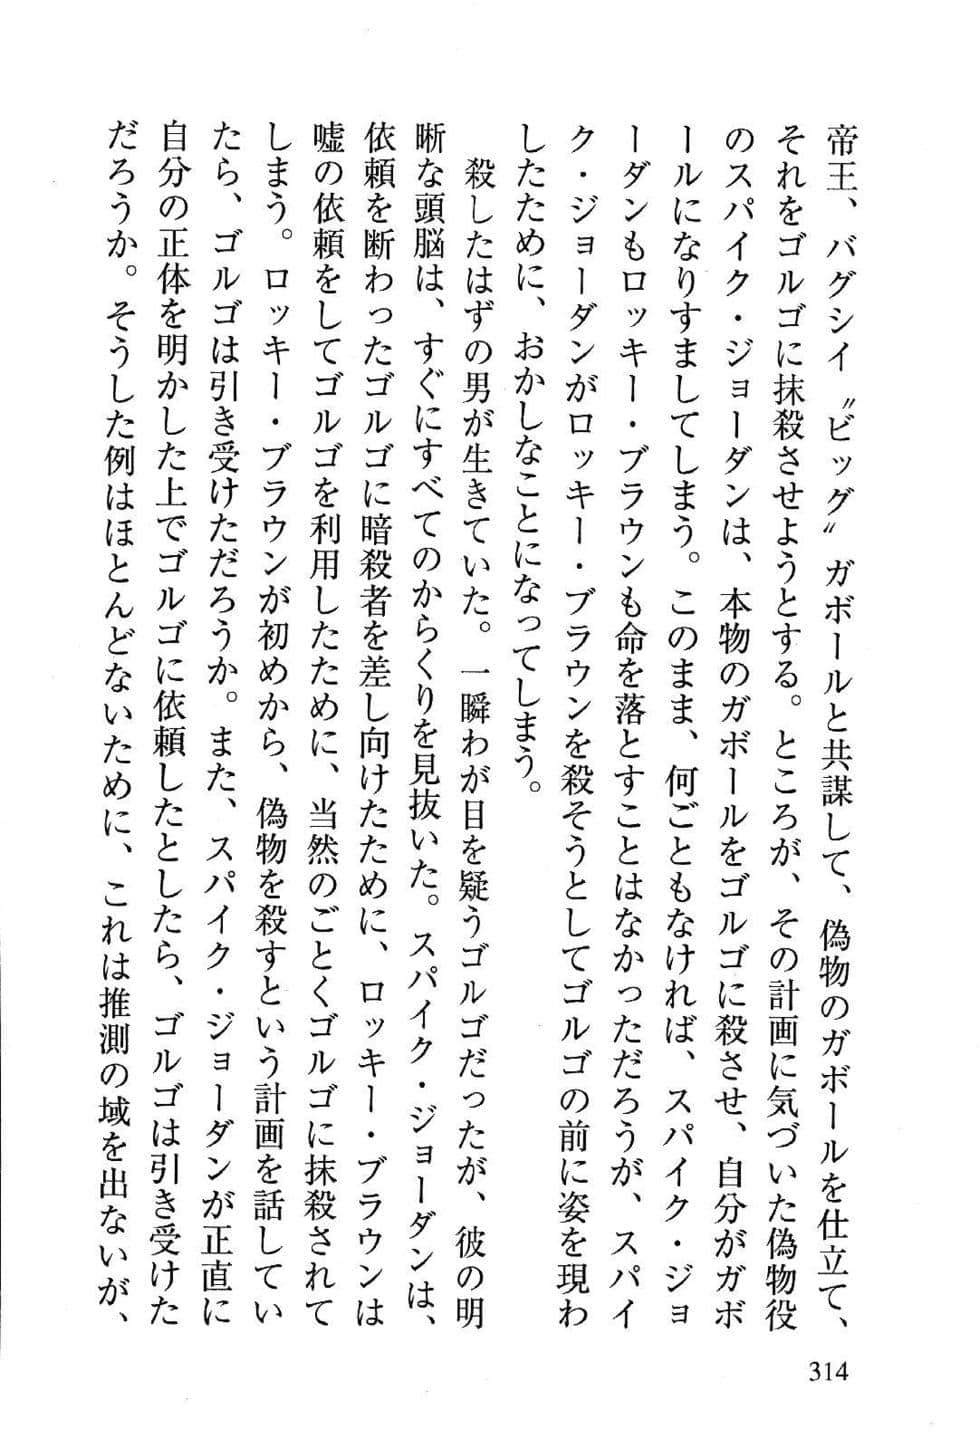 帝王、バグシイ〝ビッグ〟ガボールと共謀して、偽物のガボールを仕立て、
それをゴルゴに抹殺させようとする。ところが、その計画に気づいた偽物役
のスパイク・ジョーダンは、本物のガボールをゴルゴに殺させ、自分がガボ
ールになりすましてしまう。このまま、何ごともなければ、スパイク・ジョ
ーダンもロッキー・ブラウンも命を落とすことはなかっただろうが、スパイ
ク・ジョーダンがロッキー・ブラウンを殺そうとしてゴルゴの前に姿を現わ
したために、おかしなことになってしまう。
　殺したはずの男が生きていた。一瞬わが目を疑うゴルゴだったが、彼の明
晰な頭脳は、すぐにすべてのからくりを見抜いた。スパイク・ジョーダンは、
依頼を断わったゴルゴに暗殺者を差し向けたために、ロッキー・ブラウンは
嘘の依頼をしてゴルゴを利用したために、当然のごとくゴルゴに抹殺されて
しまう。ロッキー・ブラウンが初めから、偽物を殺すという計画を話してい
たら、ゴルゴは引き受けただろうか。また、スパイク・ジョーダンが正直に
自分の正体を明かした上でゴルゴに依頼したとしたら、ゴルゴは引き受けた
だろうか。そうした例はほとんどないために、これは推測の域を出ないが、
314